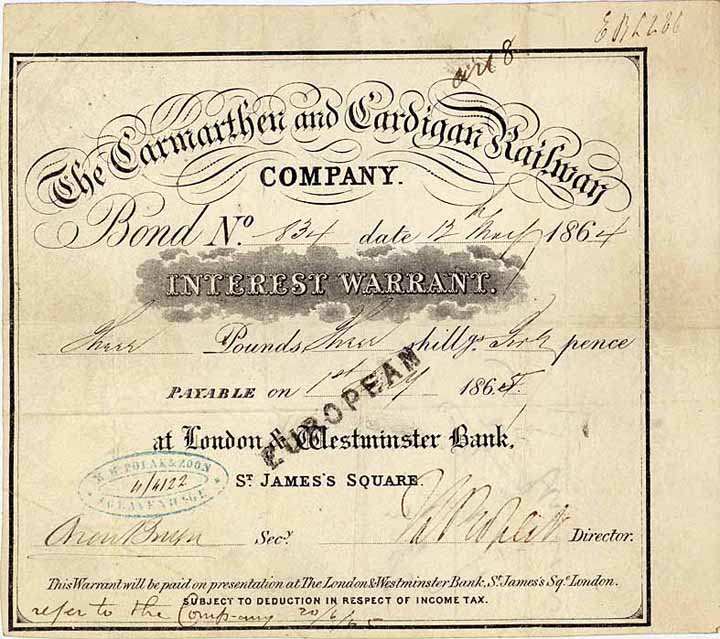 art 8
The Carmarthen and Cardigan Railway
COMPANY.
Bond No. 834 date 12th May 1864
INTEREST WARRANT.
Three Pounds, Three shillgs pence
PAYABLE on 1st 186
EUROPEAN
at London & Westminster Bank,
ST JAMES'S SQUARE.
POLAK & ZOON
11/4122
S'GRAVENHAGE
Secy.
Director.
This Warrant will be paid on presentation at The London & Westminster Bank, St. James's Sqe. London.
SUBJECT TO DEDUCTION IN RESPECT OF INCOME TAX.
refer to the Company 20/6/65